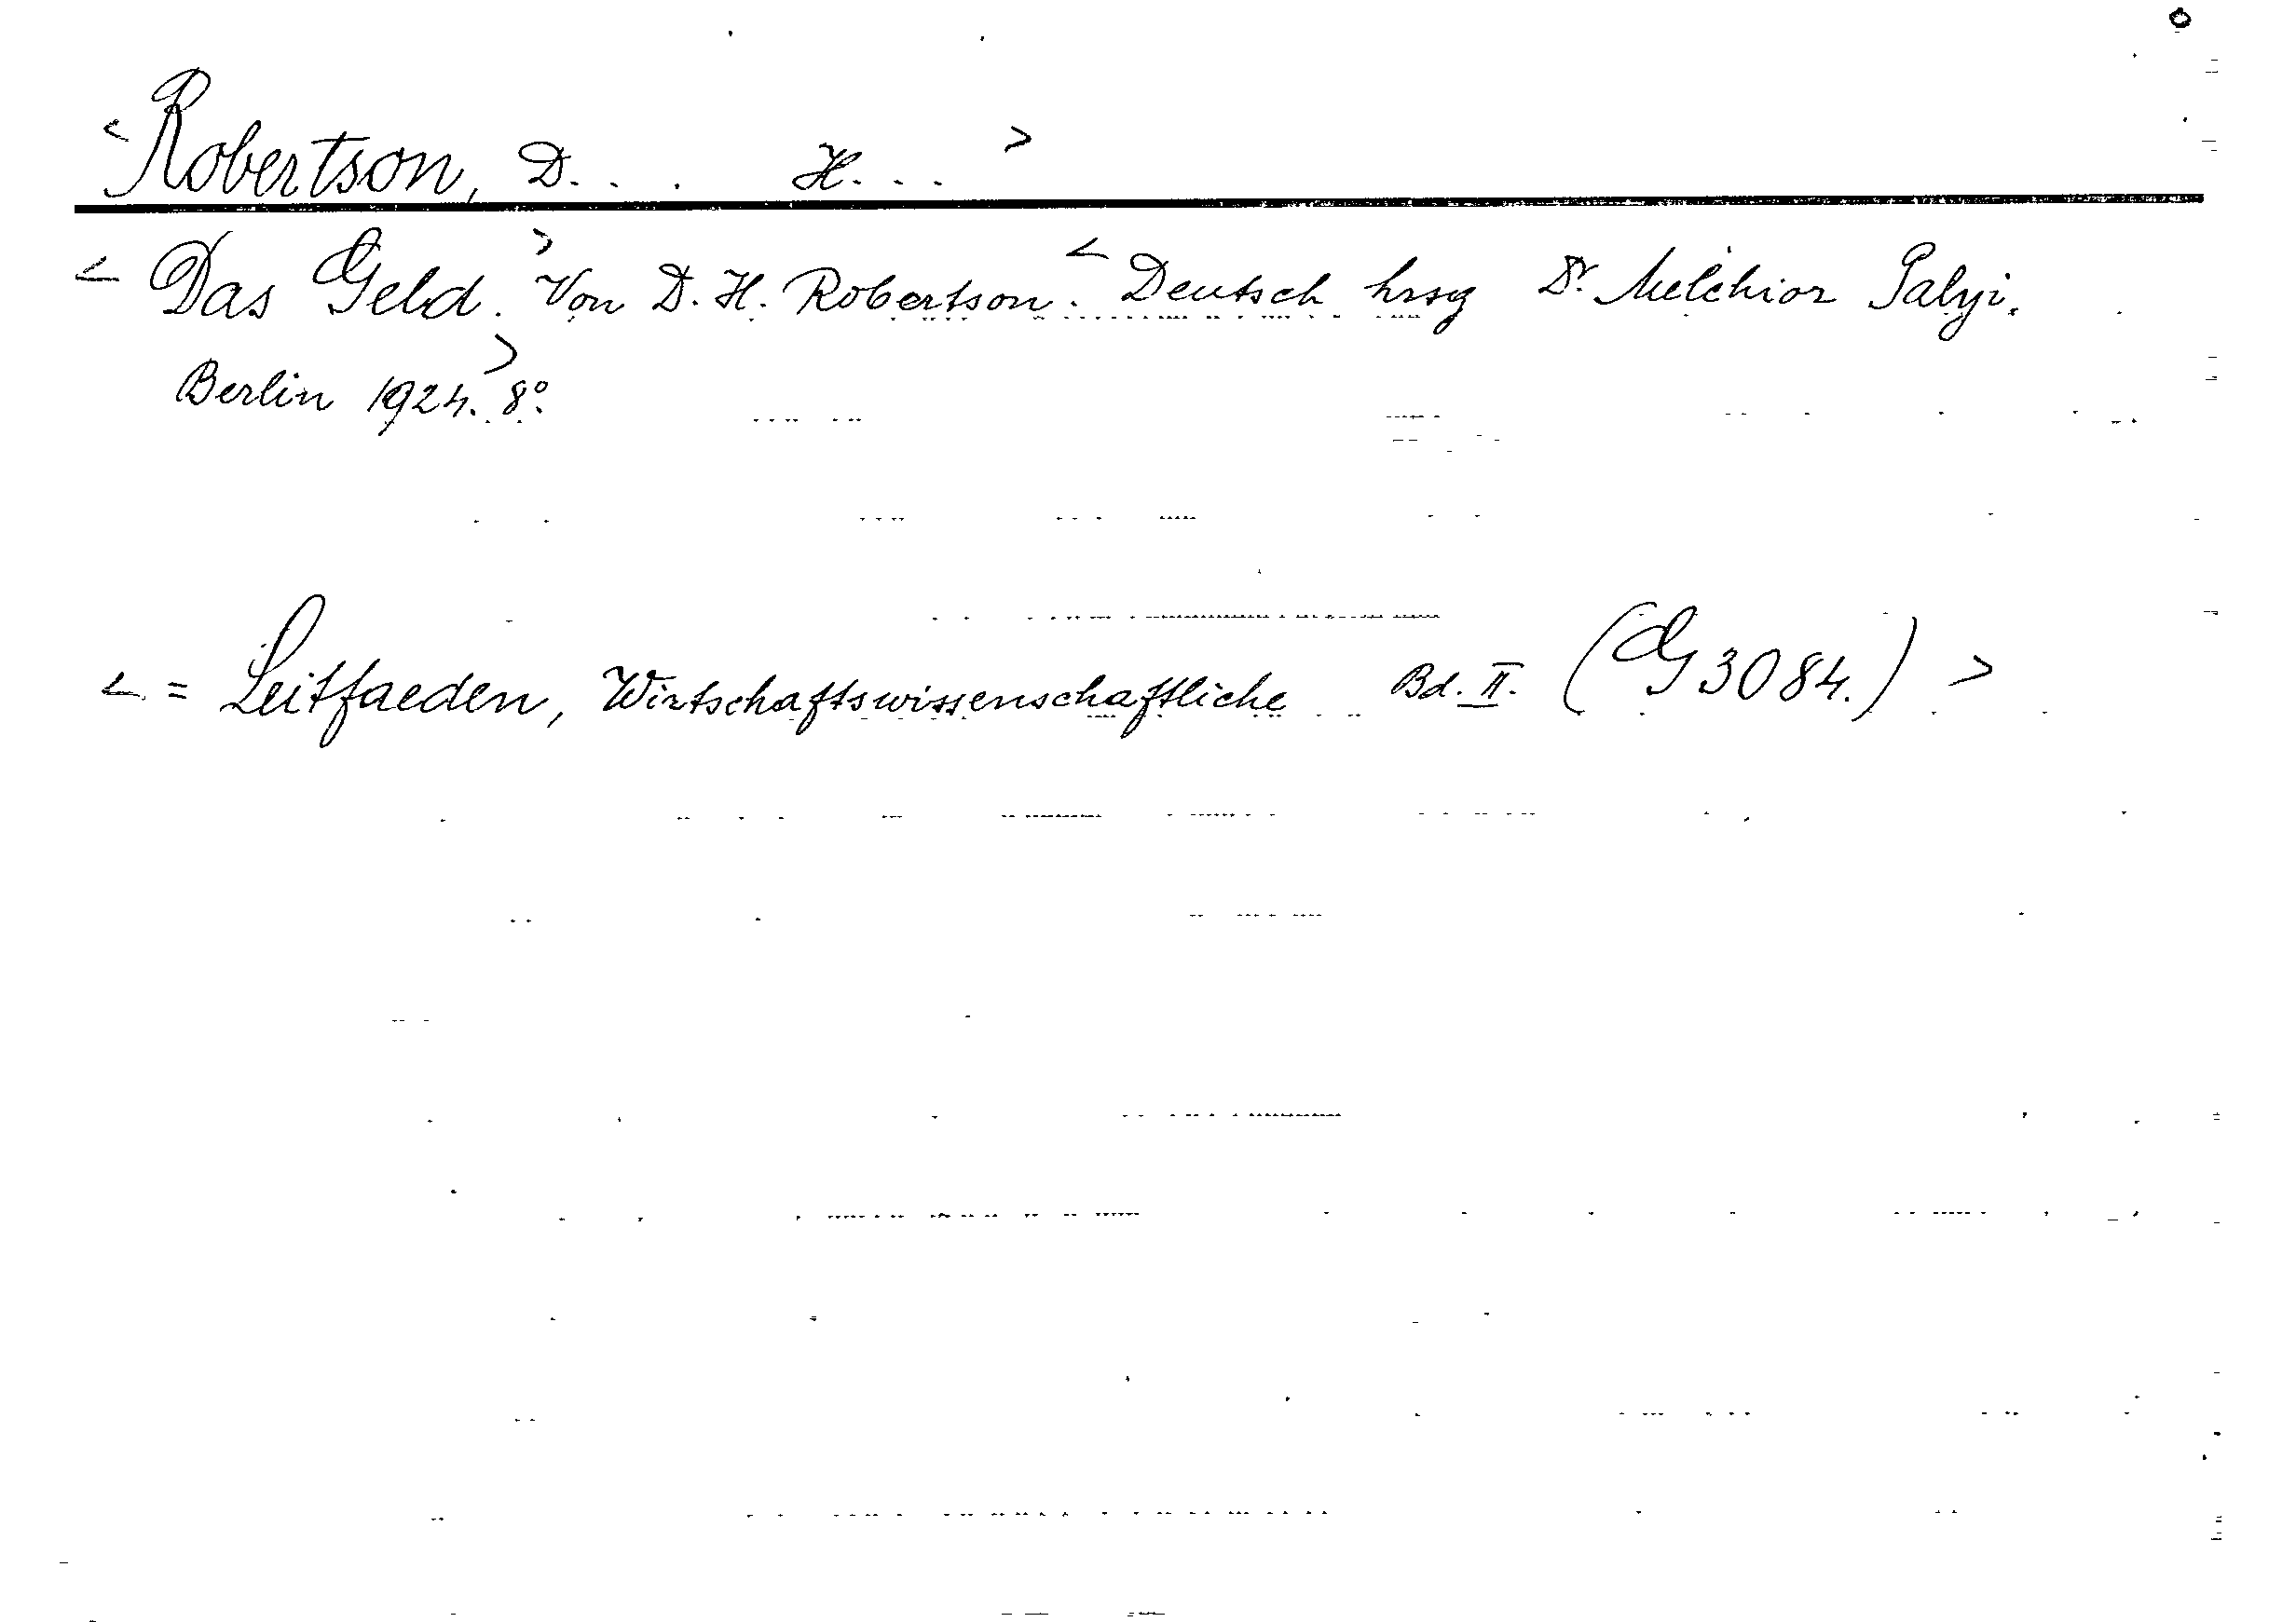 <Robertson, D. . . H. . . >
< Das Geld. > Von D. H. Robertson. < Deutsch hrsg Dr. Melchior Palyi.
Berlin 1924. > 8°.
< = Leitfaeden, Wirtschaftswissenschaftliche Bd. II. (G 3084.) >